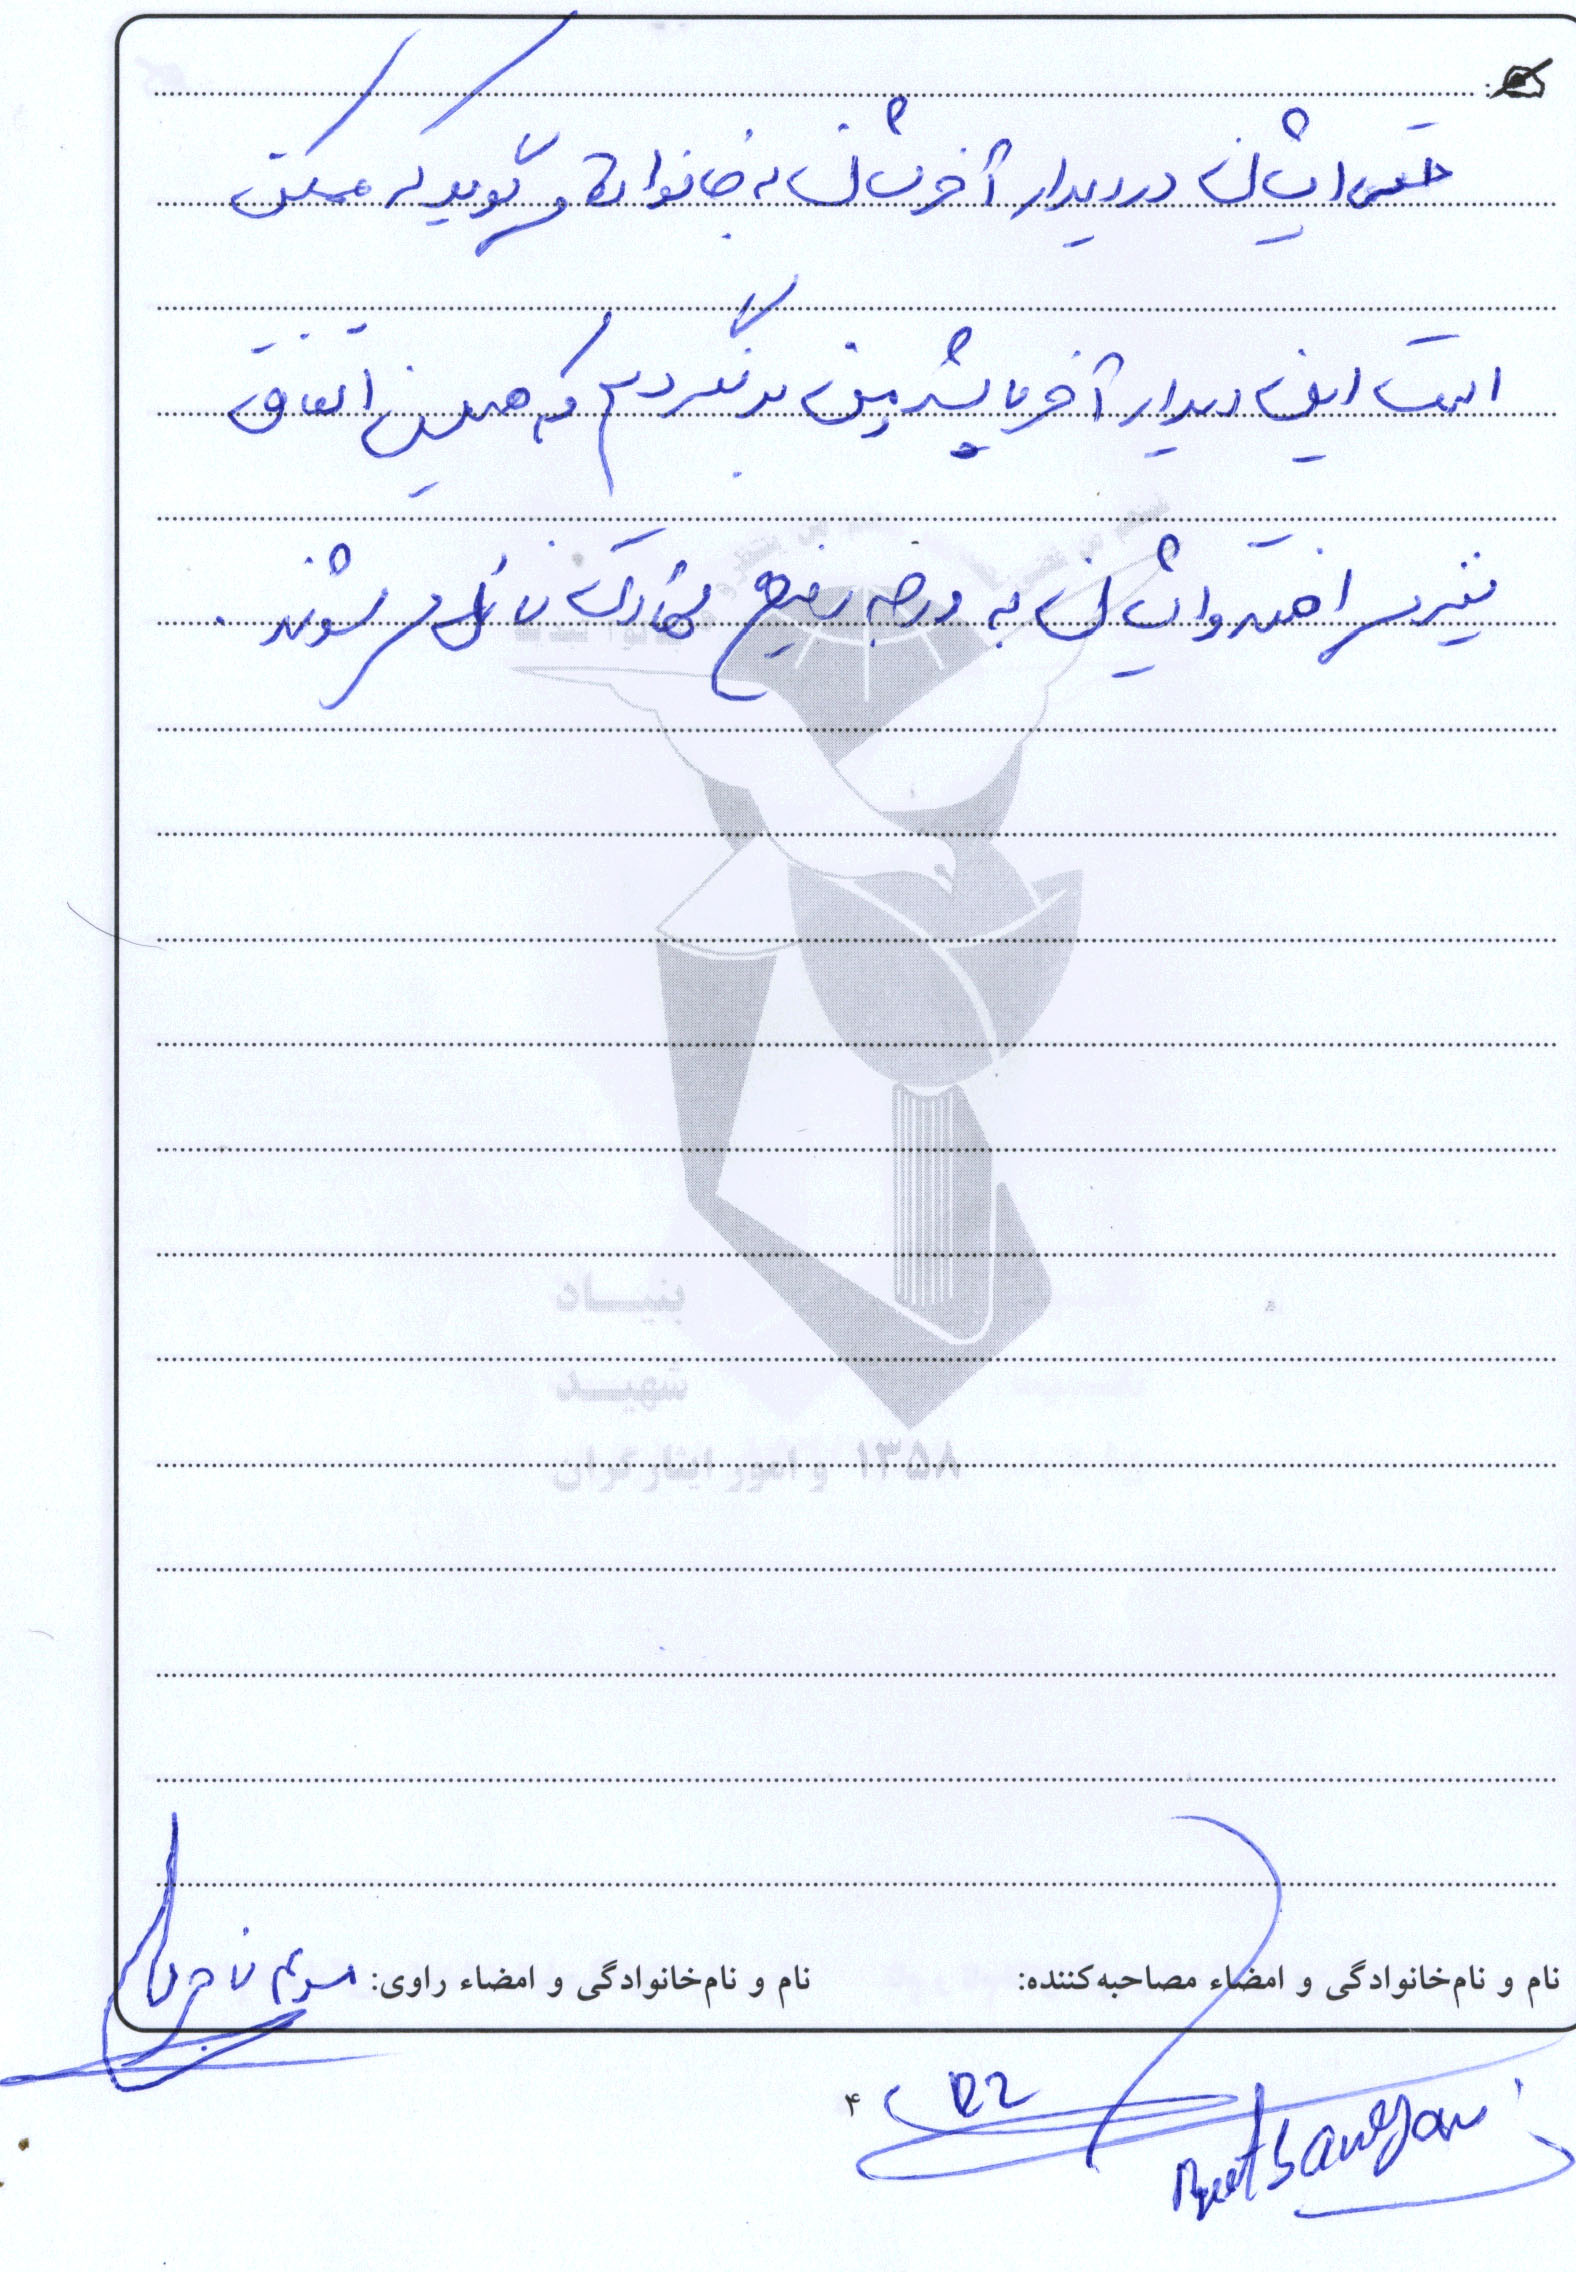 حتی ایشان در دیدار آخرشان به خانواده می گوید که ممکن
است این دیدار آخر باشد و من برنگردم که همین اتفاق
نیز می افتد و ایشان به درجه رفیع شهادت نائل می شوند.
بنیاد
شهید
۱۳۵۸ و امور ایثارگران
نام و نام‌خانوادگی و امضاء مصاحبه‌کننده:
نام و نام‌خانوادگی و امضاء راوی: مریم
۴